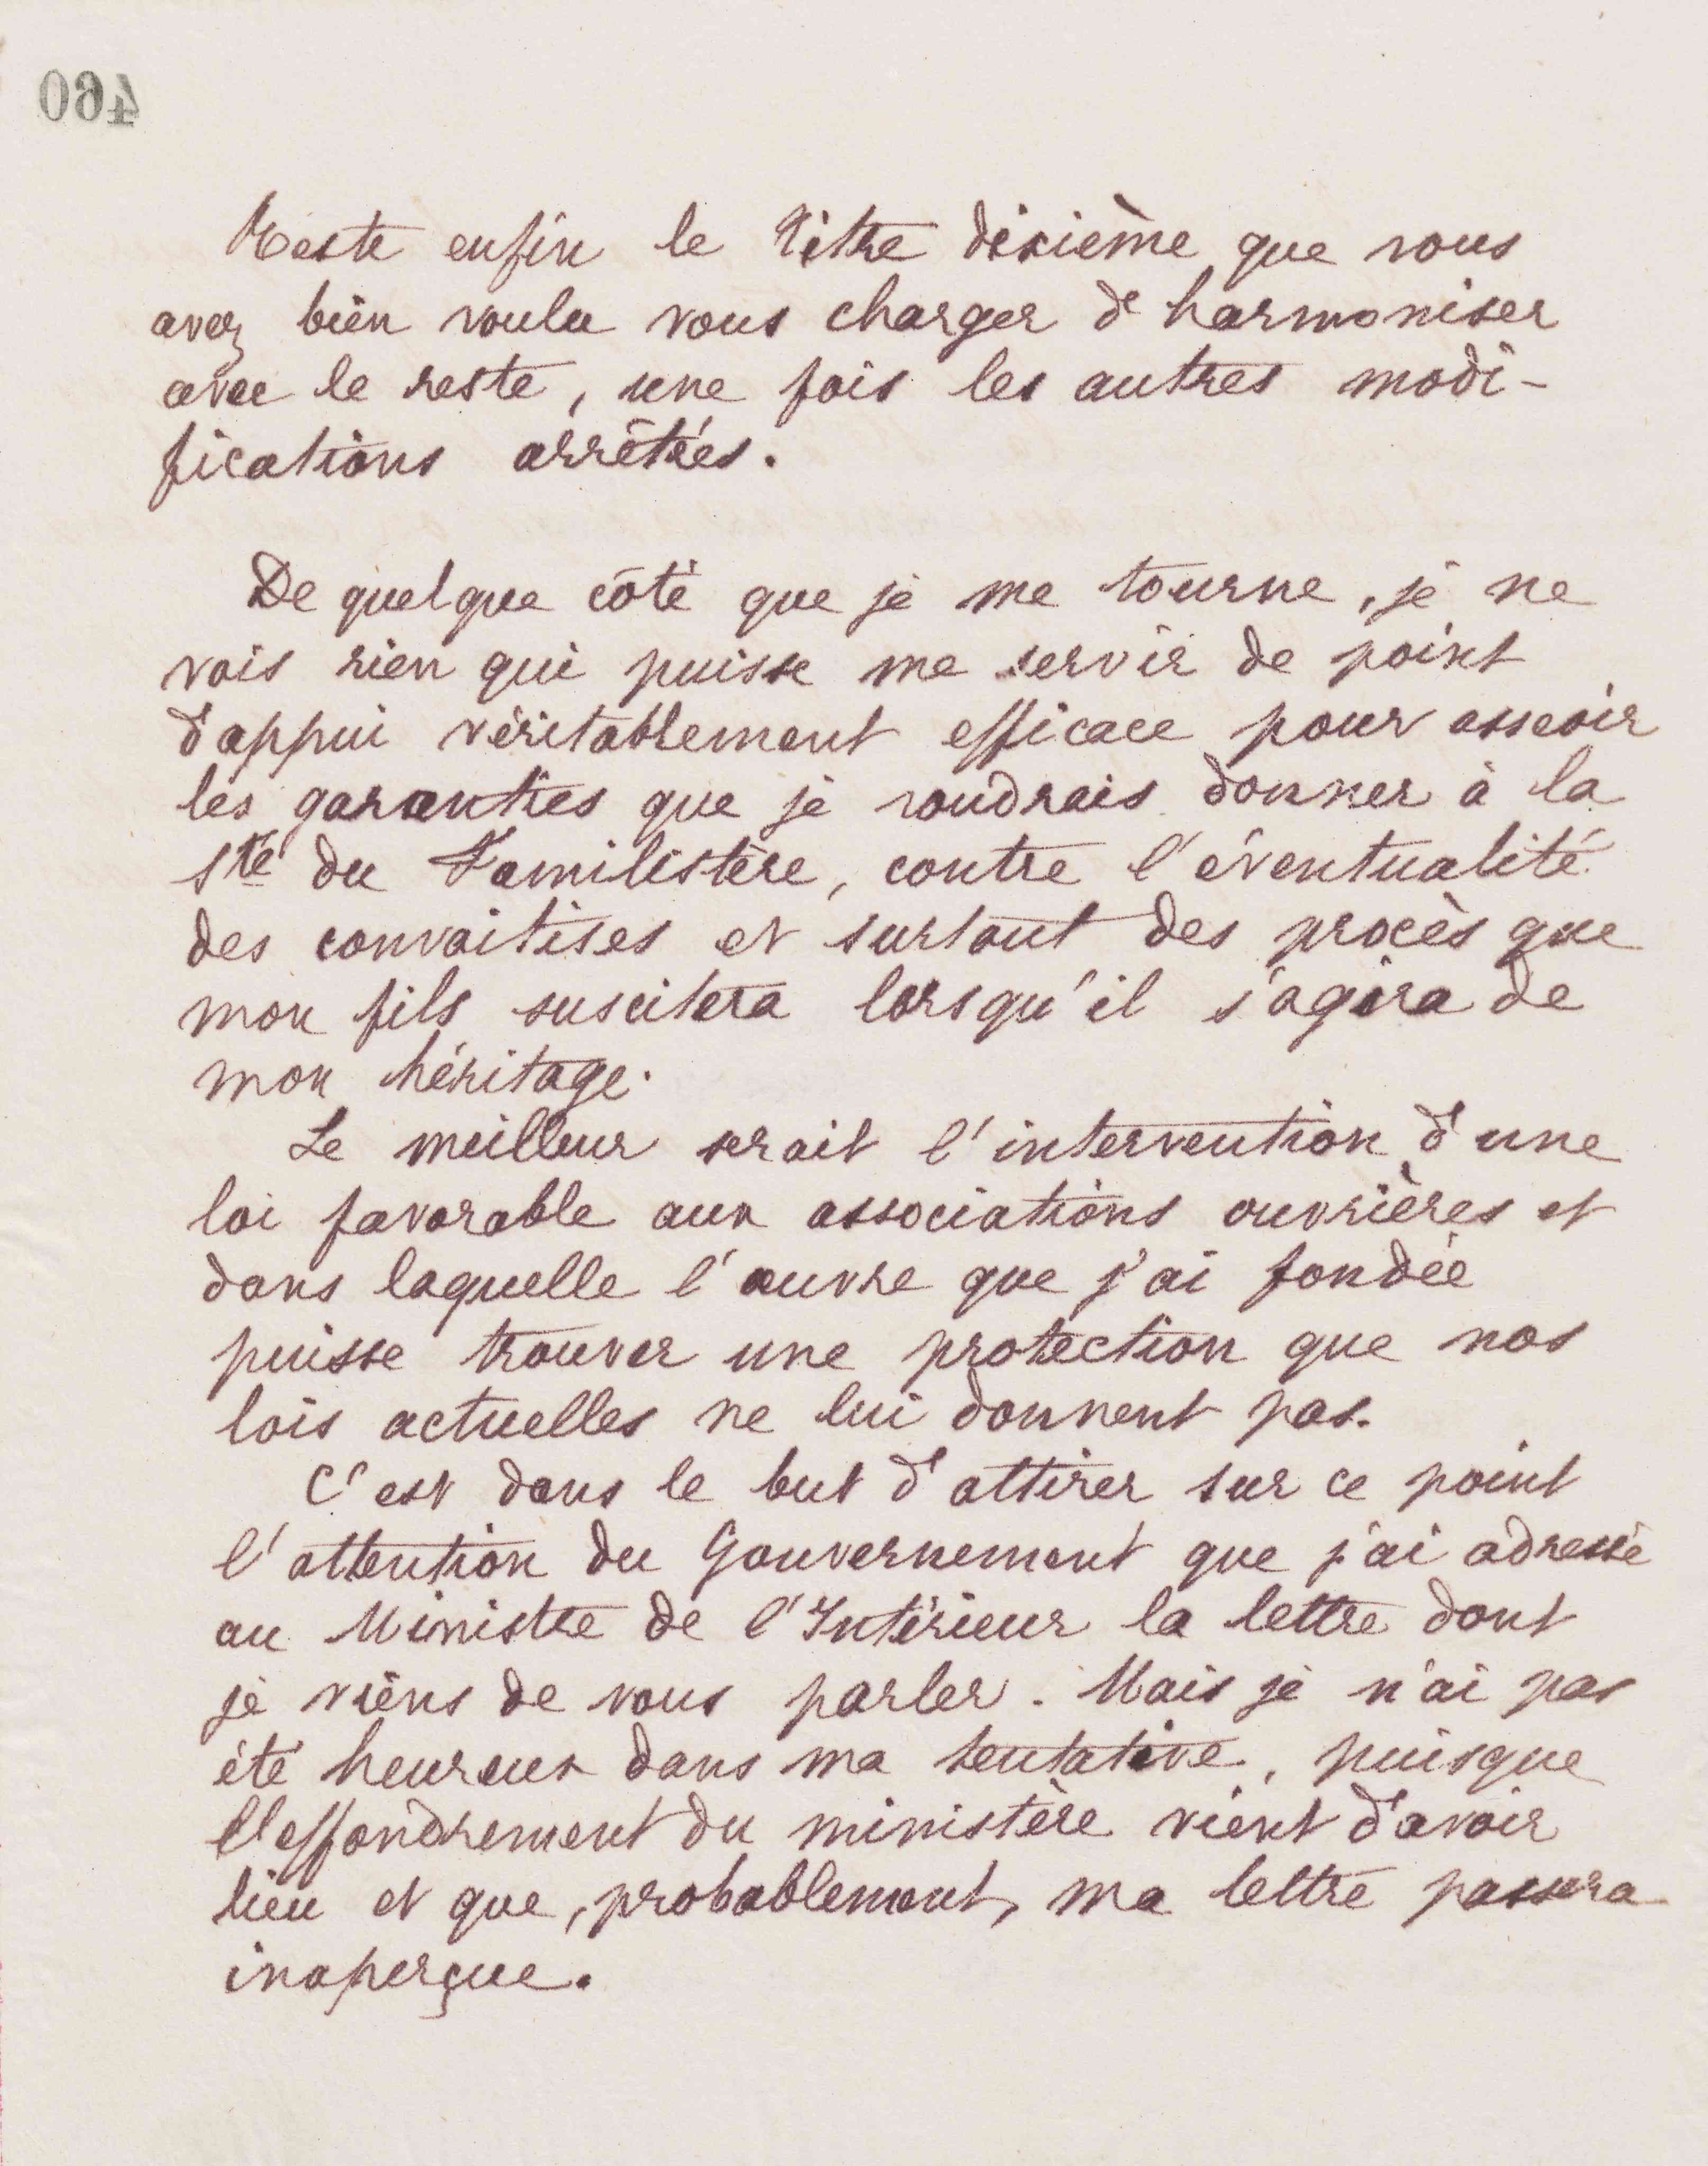 460
Reste enfin le Titre dixième que vous
avez bien voulu vous charger d'harmoniser
avec le reste, une fois les autres modi-
fications arrêtées.
De quelque côté que je me tourne, je ne
vois rien qui puisse me servir de point
d'appui véritablement efficace pour asseoir
les garanties que je voudrais donner à la
Sté du Familistère, contre l'éventualité
des convoitises et surtout des procès que
mon fils suscitera lorsqu'il s'agira de
mon héritage.
Le meilleur serait l'intervention d'une
loi favorable aux associations ouvrières et
dans laquelle l'œuvre que j'ai fondée
puisse trouver une protection que nos
lois actuelles ne lui donnent pas.
C'est dans le but d'attirer sur ce point
l'attention du Gouvernement que j'ai adressé
au Ministre de l'Intérieur la lettre dont
je viens de vous parler. Mais je n'ai pas
été heureux dans ma tentative, puisque
l'effondrement du ministère vient d'avoir
lieu et que, probablement, ma lettre passera
inaperçue.